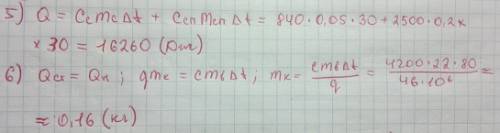 5) Q = CcmcΔt + CспmспΔt = 840·0,05·30 + 2500·0,2×
× 30 = 16260 (Дж)
6) Qсг = Qн ; qmк = cmвΔt ; mк = cmвΔt / q = 4200·22·80 / 46·10⁶ =
≈ 0,16 (кг)